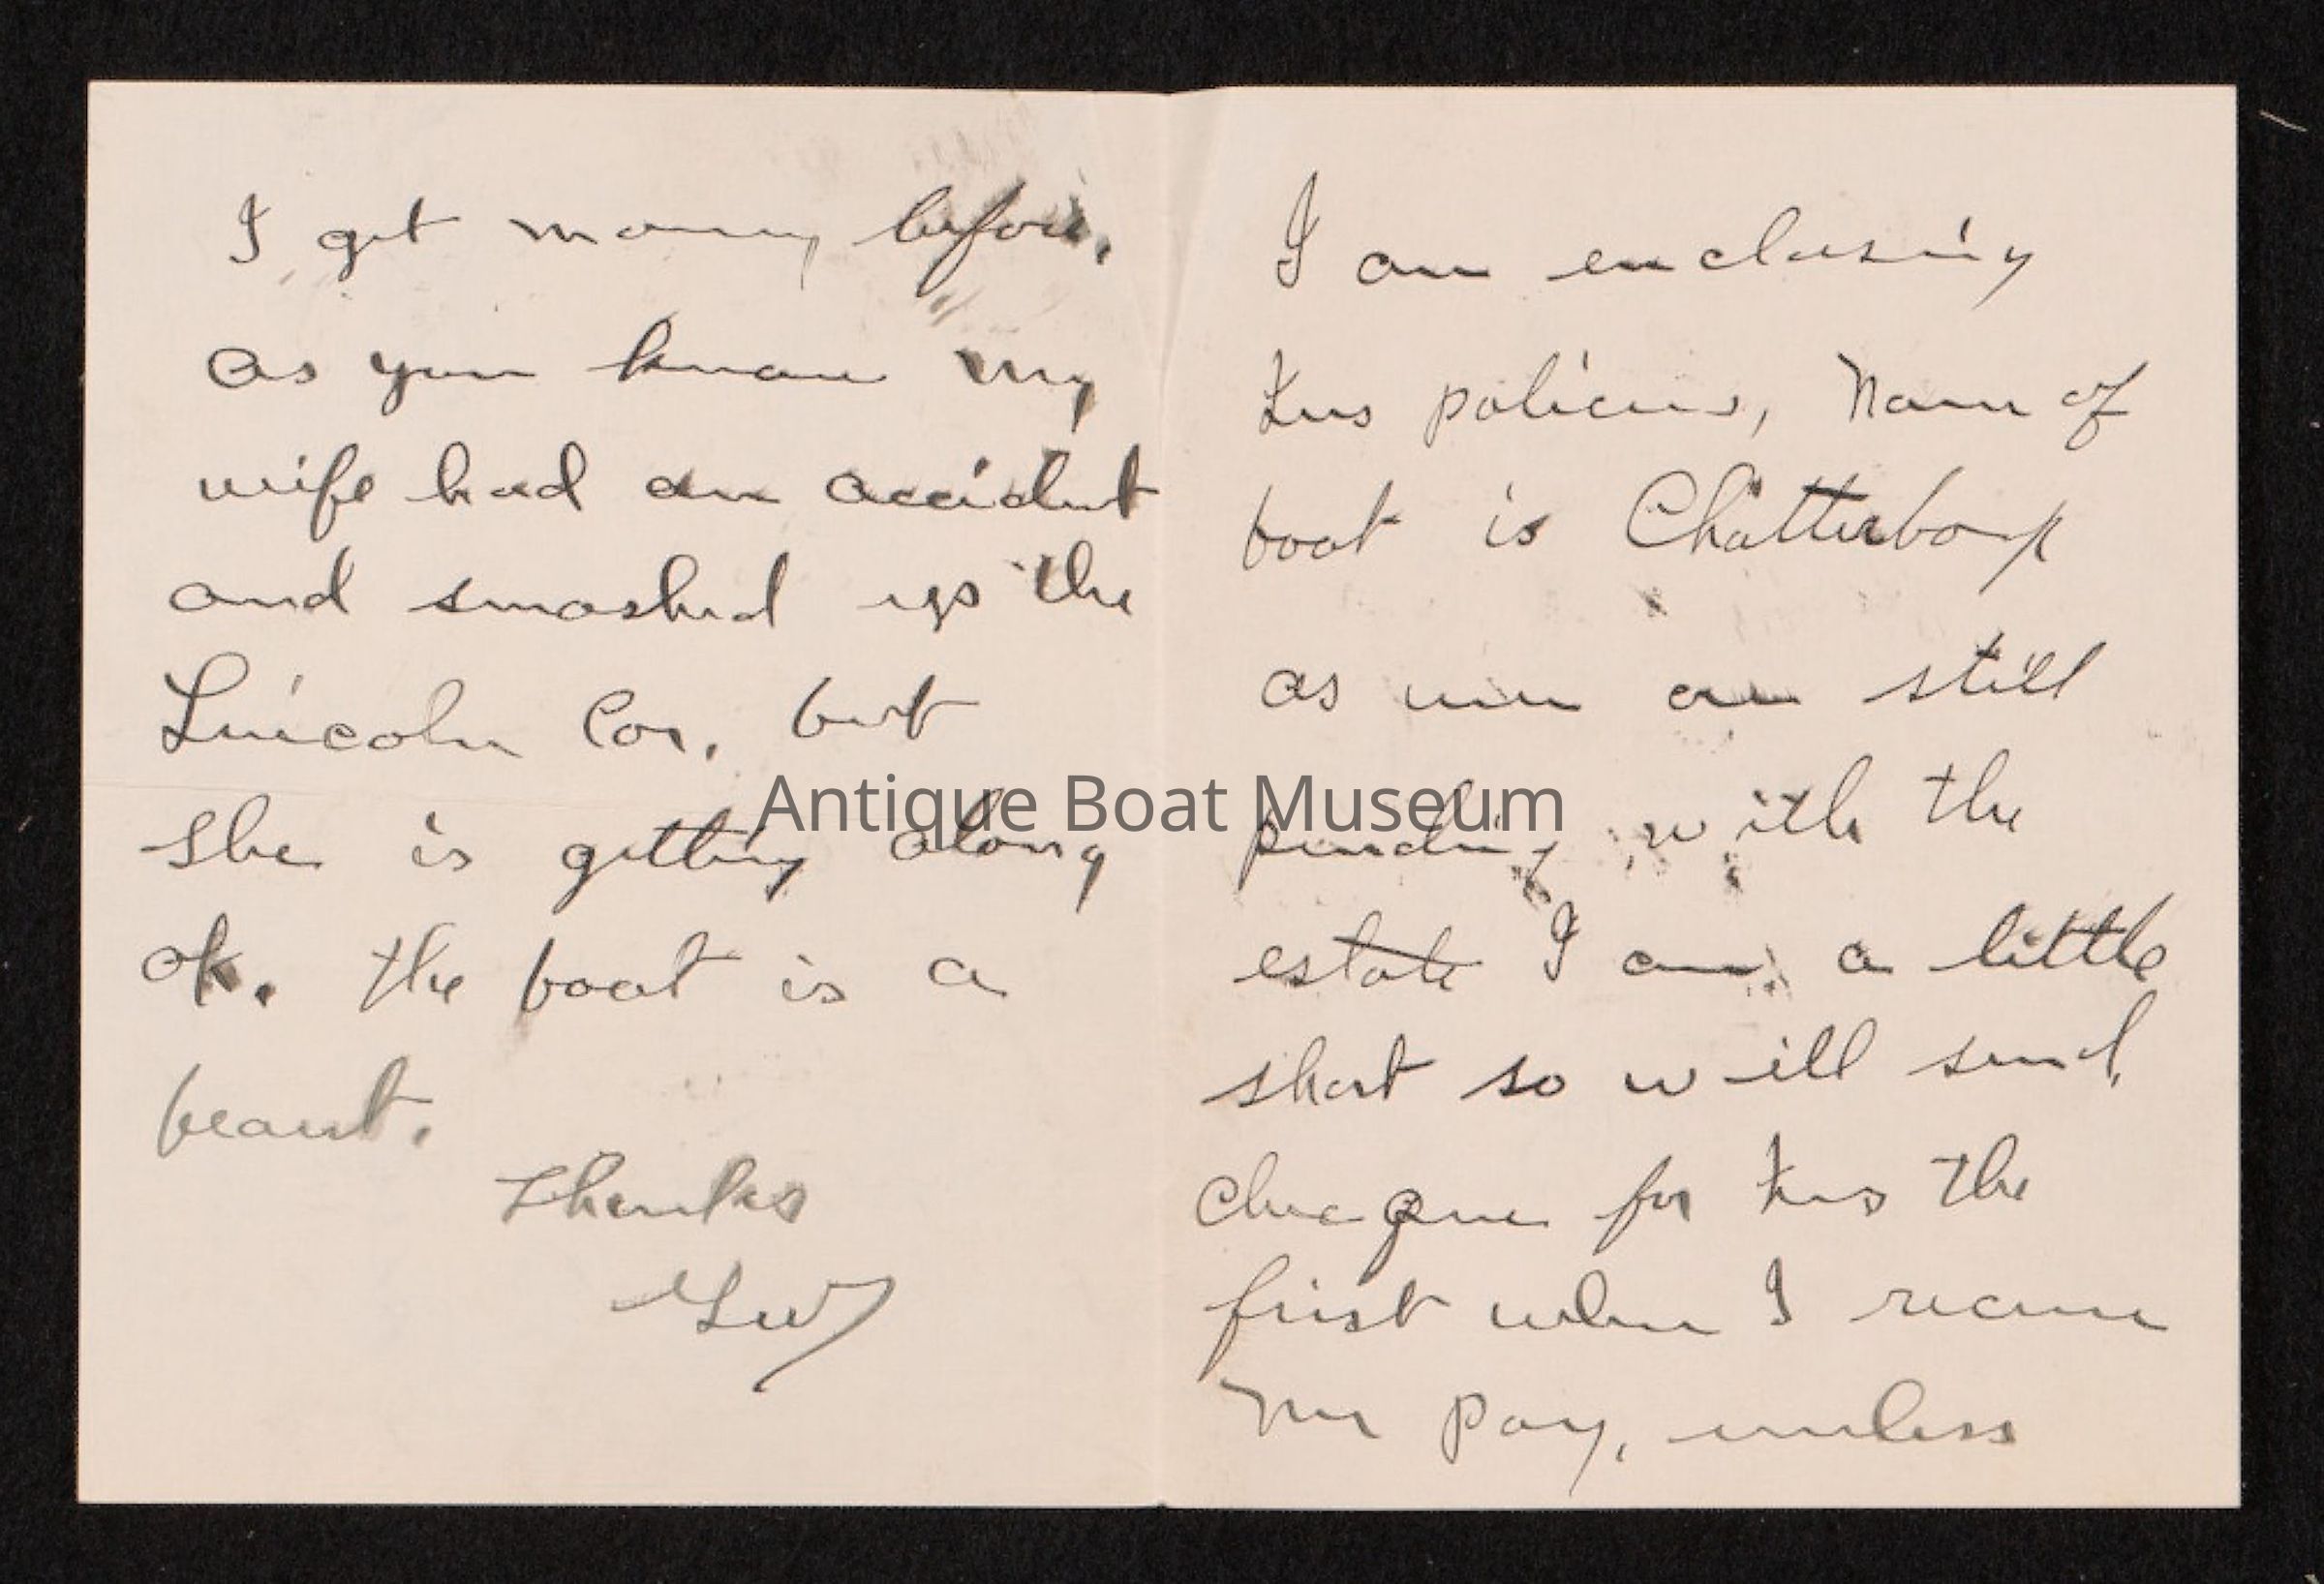 I am enclosing
Ins policies, Name of
boat is Chatterbox
as are still
pending with the
estate I am a little
short so will send
cheque for Ins the
first when I receive
Pay, unless
I get money before.
as you know my
wife had an accident
and smashed up the
Lincoln Car. but
she is getting along
ok. the boat is a
beaut.
Thanks
Antique Boat Museum